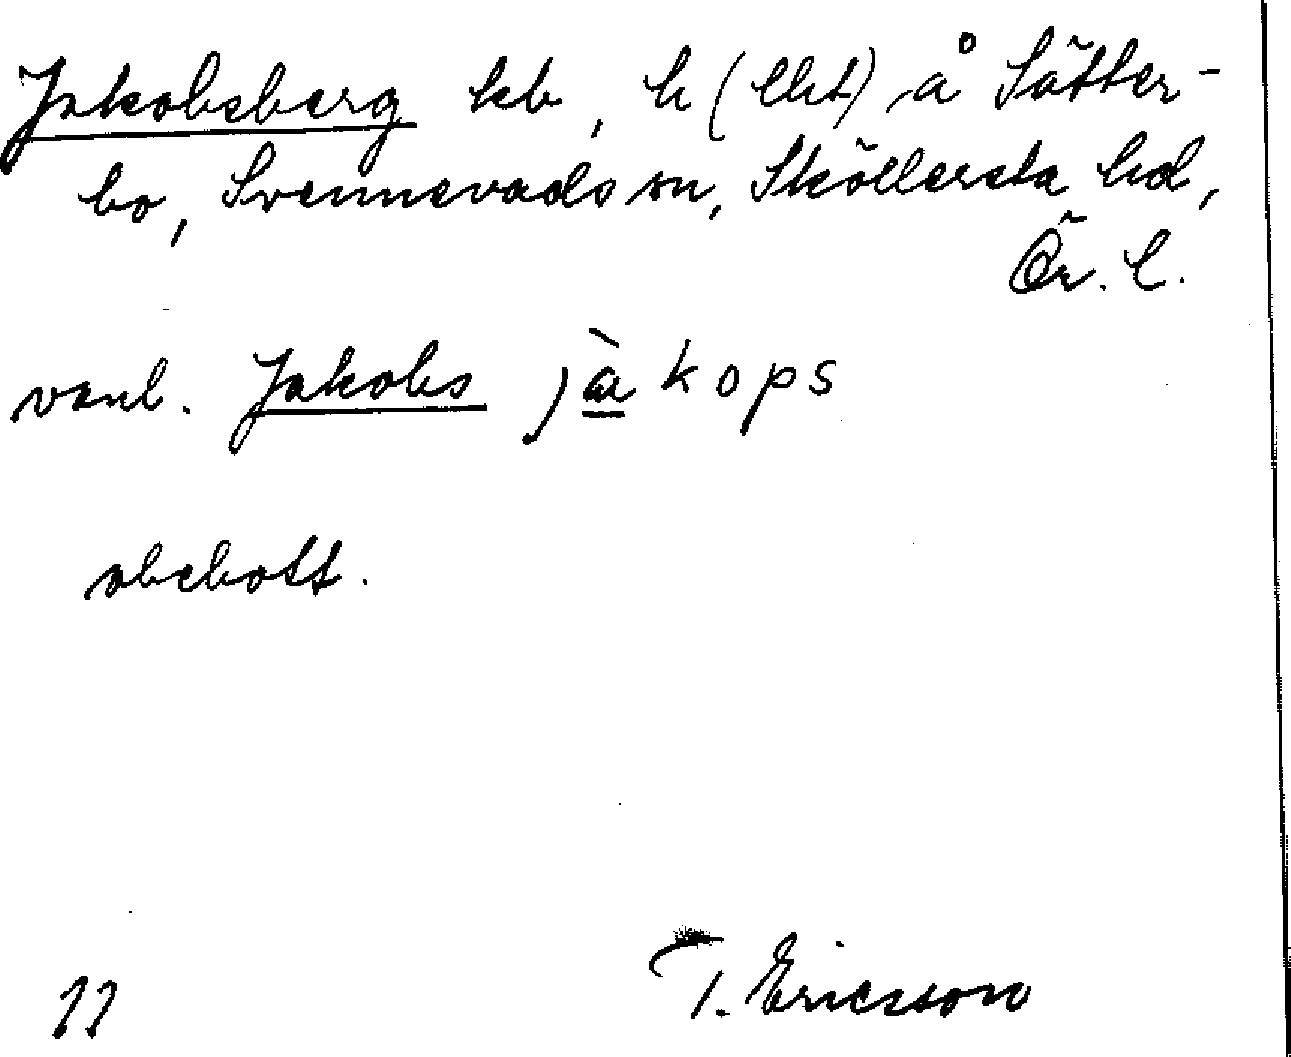 Jakobsberg kb, h (lht) å Sätter-
bo, Svennevads sn, Sköllersta hd,
Ör. l.
vanl. Jakobs jàkops
obebott.
11 T. Ericsson